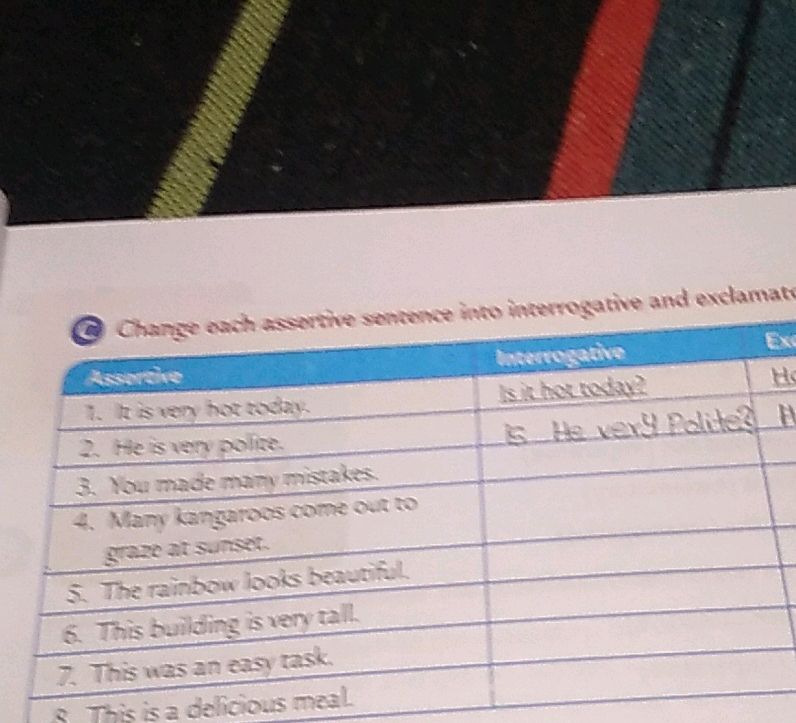 C Change each assertive sentence into interrogative and exclamat
Assertive Interrogative Ex
1. It is very hot today. Is it hot today? Ho
2. He is very polite. Is He very Polite? H
3. You made many mistakes.
4. Many kangaroos come out to
graze at sunset.
5. The rainbow looks beautiful.
6. This building is very tall.
7. This was an easy task.
8. This is a delicious meal.